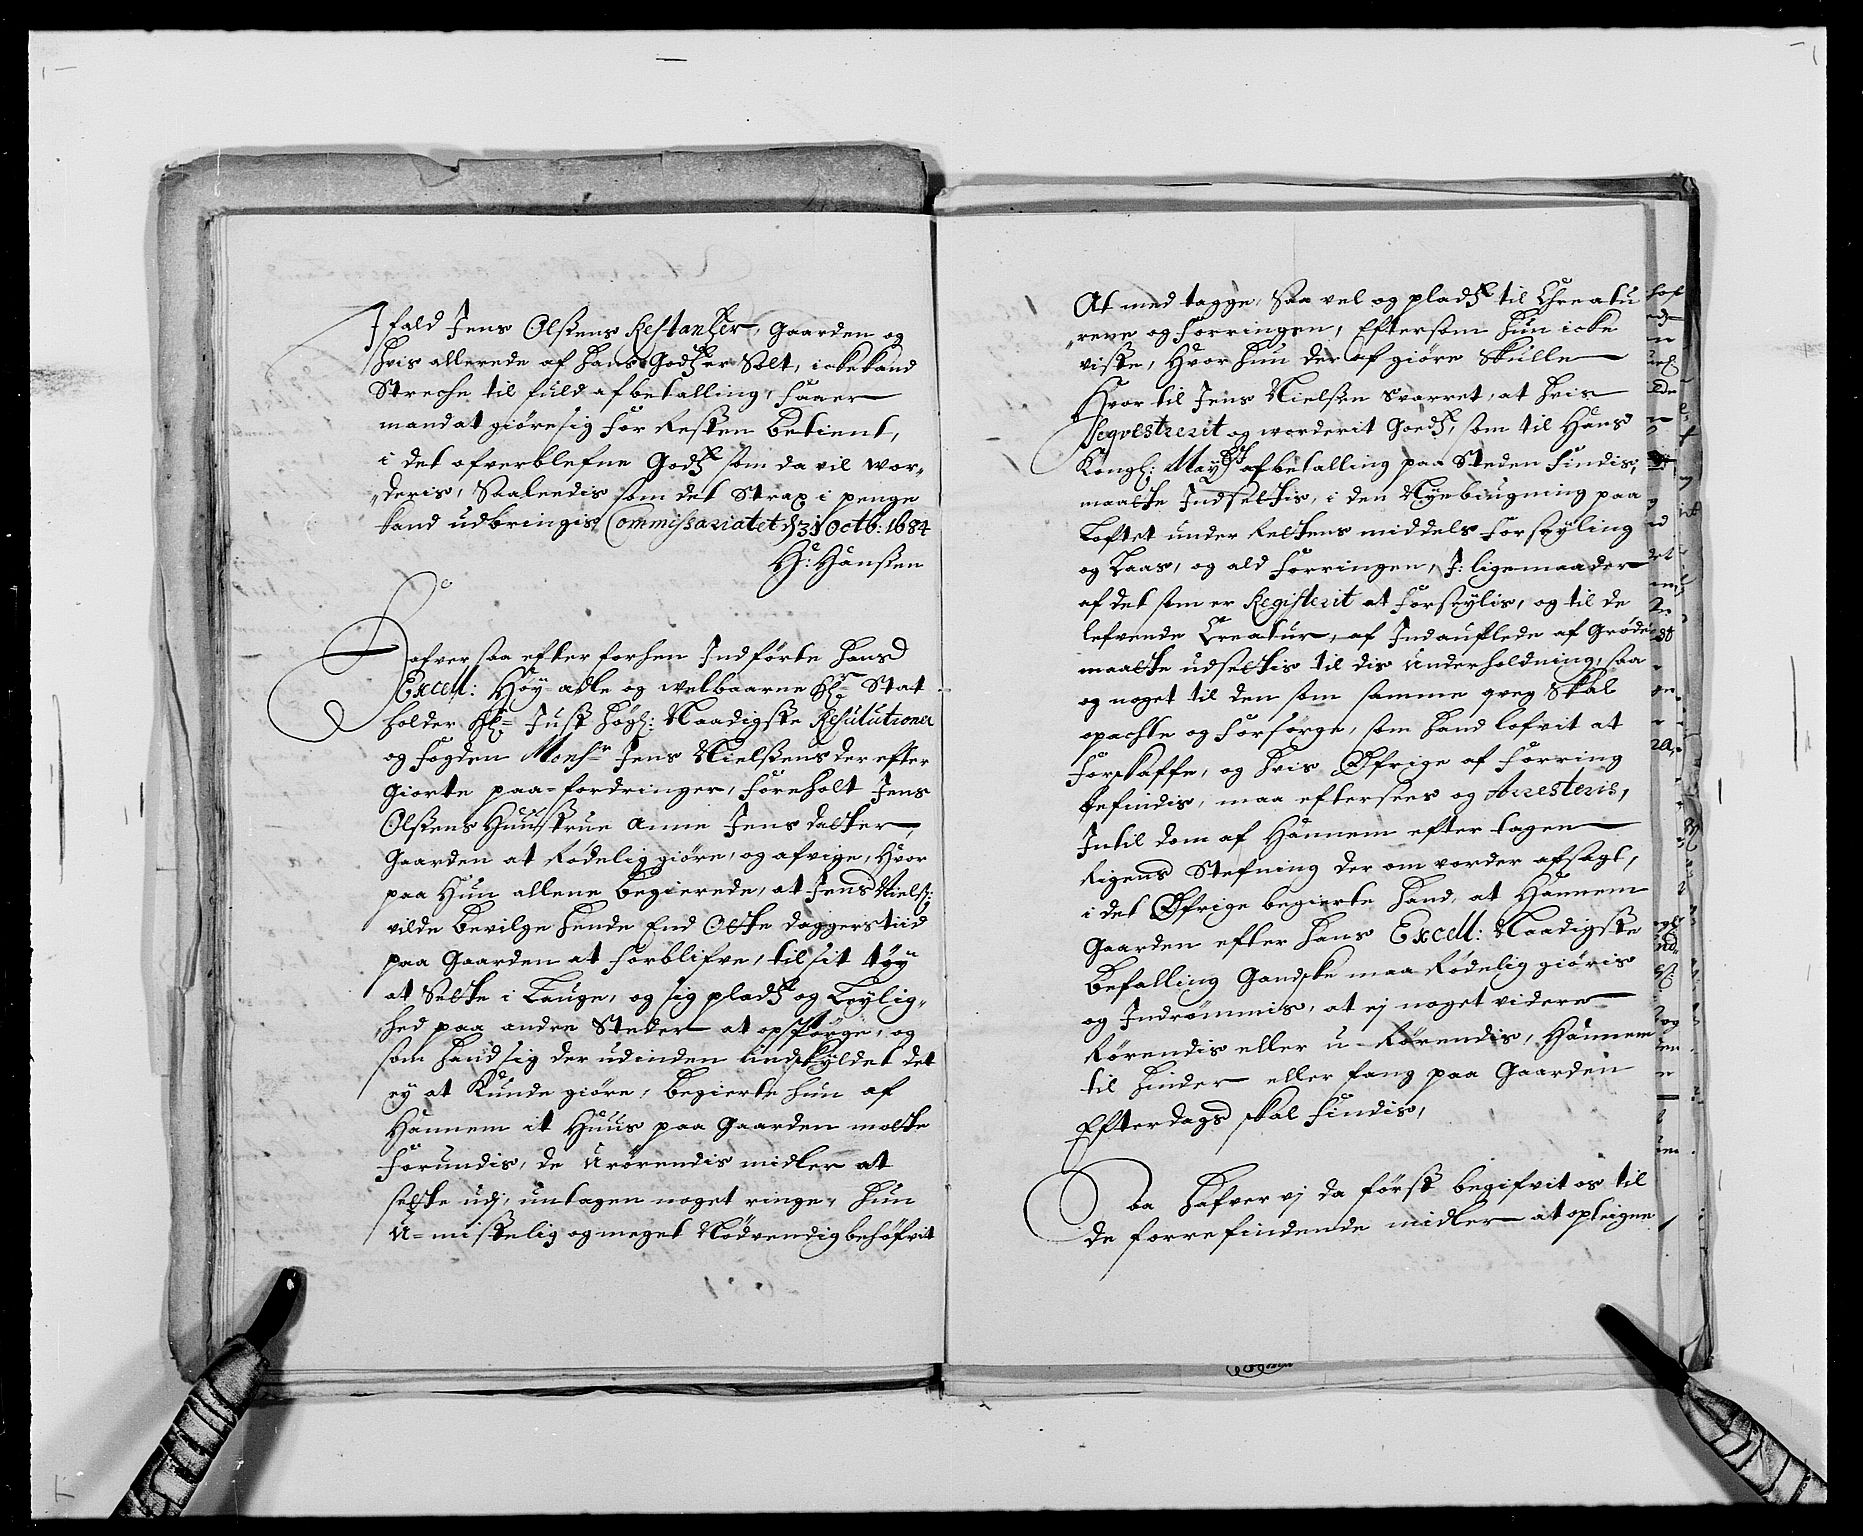 I fald Jens Olßens Restantzer, Gaarden og
hvis allerede af hans Godtz er Solt, icke kand
Streche til fuld afbetalling, faaer
mand at giøre sig for Resten betient,
i det ofverblefne Godtz som da vil wor-
deris, Saaleedis som det Strax i penge
kand udbringis, Commissariatet d 31 Octb: 1684
H: Hanßen
Hafver saa efter forhen Indførte hans
Excell: Høy-adle og welbaarne Hr Stat
holder Hr Just Høgs: Naadigste Resulutioner
og fogden Monsr Jens Nielßens der efter
giorte paa-fordringer, foreholt Jens
Olßens Huustrue Anne Jens datter
Gaarden at Rødelig giøre, og afvige, Hvor
paa Hun allene begierede, at Jens Nielß:
vilde bevilge hende End Otte daggers tiid
paa Gaarden at forblifve, til sit tøy
at Sette i Lauge, og sig pladtz og Leylig-
hed paa andre Steder at opspørge, og
som hand sig der udinden undskyldet det
ey at Kunde giøre, begierte hun af
Hannem it Huus paa Gaarden motte
forundis, de Urørendis midler at
sette udj, untagen noget ringe, hun
U-mistelig og meget Nødvendig behøfvit
At med tagge, Saa vel og pladtz til Chreatu
rene og forringen, Eftersom hun icke
viste, Hvor hun der af giøre skulle
Hvor til Jens Nielßen svarret, at hvis
Seqvestrerit og worderit Goedtz, som til Hans
Kongl: Maytz afbetalling paa Steden findis,
maatte Indsettis, i den Nye bugning paa
Loftet under Rettens middels forseyling
og Laas, og ald forringen, J: ligemaader
af det som er Registerit at forseylis, og til de
lefvende Creatur, af Indauflede af Grøde
maatte udsettis til dis Underholdning, saa
og noget til den som samme qveg skal
opachte og forsørge, som hand lofvit at
forskaffe, og hvis Øfrige af forring
befindis, maa eftersees og Arresteris,
Intil dom af Hannem efter tagen
Rigens Stefning der om vorder afsagt,
i det Øfrige begierte hand, at Hannem
Gaarden efter hans Excell: Naadigste
befalling Gandske maa Rødelig giøris
og Indrømmis, at ej noget videre
Rørendis eller u-Rørendis, Hannem
til hinder eller fang paa Gaarden
Efterdags skal findis,
Saa hafver vj da først begifvit os til
de forrefindende midler at opteigne